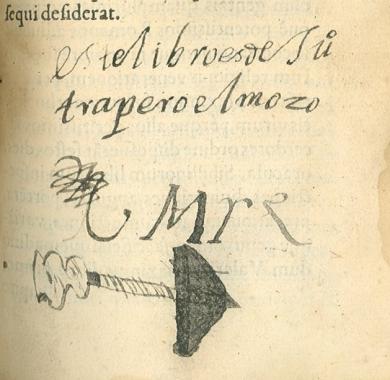 sequi desiderat.
este libro es de Jũ
trapero el mozo